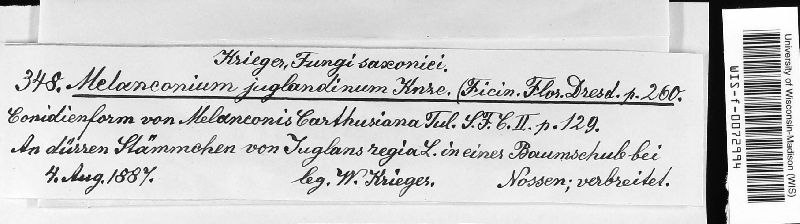 Krieger, Fungi saxonici.
348. Melanconium juglandinum Knze. (Ficin. Flor. Dresd. p. 260.
Conidienform von Melanconis Carthusiana Tul. S. F. C. II. p. 129.
An dürren Stämmchen von Juglans regia L. in einer Baumschule bei
4. Aug. 1887. leg. W. Krieger. Nossen; verbreitet.
University of Wisconsin-Madison (WIS)
WIS-f-0072994